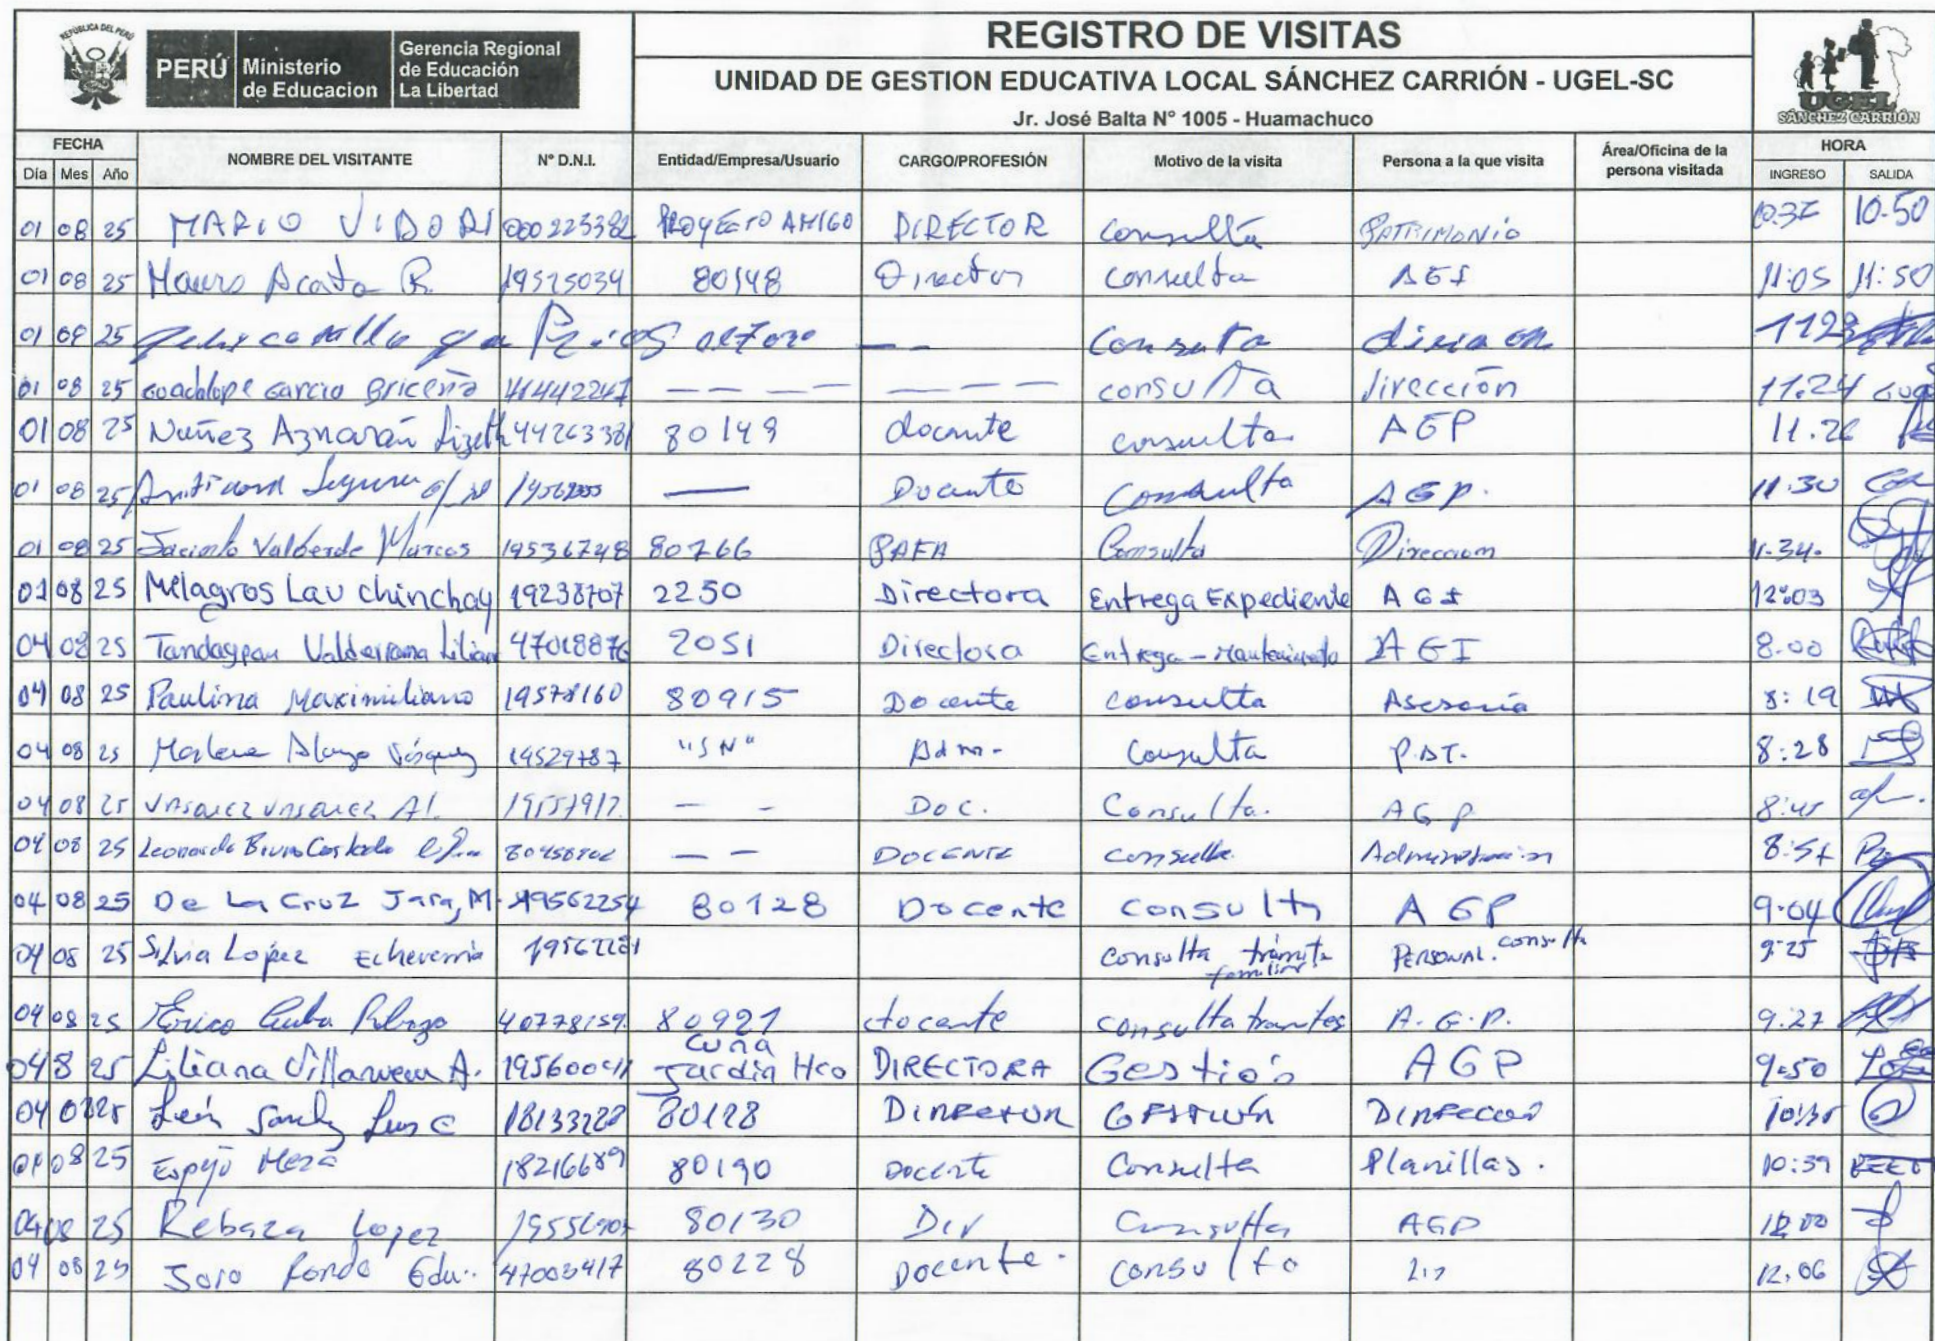 REPÚBLICA DEL PERÚ
PERÚ Ministerio de Educacion
Gerencia Regional de Educación La Libertad
REGISTRO DE VISITAS
UNIDAD DE GESTION EDUCATIVA LOCAL SÁNCHEZ CARRIÓN - UGEL-SC
Jr. José Balta N° 1005 - Huamachuco
UGEL
SÁNCHEZ CARRIÓN
FECHA NOMBRE DEL VISITANTE N° D.N.I. Entidad/Empresa/Usuario CARGO/PROFESIÓN Motivo de la visita Persona a la que visita Área/Oficina de la persona visitada HORA
Día Mes Año INGRESO SALIDA
01 08 25 MARIO VIDORI 000223382 PROYECTO AMIGO DIRECTOR Consulta PATRIMONIO 10.37 10.50
01 08 25 Mauro Acosta R. 19525034 80148 Director consulta AGI 11:05 11:50
01 08 25 Consulta 112
01 08 25 Guadalupe Garcia Briceño 41442247 — — — — — — — — consulta dirección 11.24
01 08 25 Nuñez Aznarán Lizeth 44263381 80149 docente consulta AGP 11.26
01 08 25 — Docente Consulta AGP. 11.30
01 08 25 Jacinto Valverde Marcos 19536748 80766 PAFA Consulta Direccion 11.34.
01 08 25 Milagros Lau Chinchay 19238707 2250 Directora Entrega Expediente AGI 12:03
04 08 25 Tandaypan Valderrama Lilian 47018876 2051 Directora Entrega - Mantenimiento AGI 8.00
04 08 25 Paulina Maximiliano 19578160 80915 Docente consulta Asesoria 8:19
04 08 25 Marlene Vásquez 19529787 "SN" Adm- Consulta P.DT. 8:28
04 08 25 Vasquez Vasquez Al. — — Doc. Consulta. AGP 8:45
04 08 25 Leonardo Bruno — — DOCENTE consulta Administracion
04 08 25 De La Cruz Jara, M. 19562254 80128 Docente consulta AGP 9.04
04 08 25 Silvia Lopez Echeverria consulta trámite familiar PERSONAL. consulta 9:25
04 08 25 40778159 80921 docente consulta tramites A.G.P. 9.27
04 8 25 Liliana Villanueva A. 19560041 Cuna Jardin Hco DIRECTORA Gestión AGP 9:50
04 08 25 León Luis C 18133228 80128 DIRECTOR GESTIÓN DIRECCION 10:35
04 08 25 Espejo Meza 18216689 80190 Docente Consulta Planillas. 10:39
04 08 25 Rebaza Lopez 80130 Dir Consulta AGP
04 08 25 47003417 80228 Docente. consulta 12.06